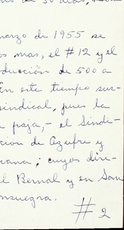 marzo de 1955 se
os mas, el #12 y el
ducción de 500 a
En este tiempo sur-
sindical, pues la
paja,- el Sindi-
ción de Azufre y
cana; cuyos diri-
l Bernal y en San
nsuegra.
#2